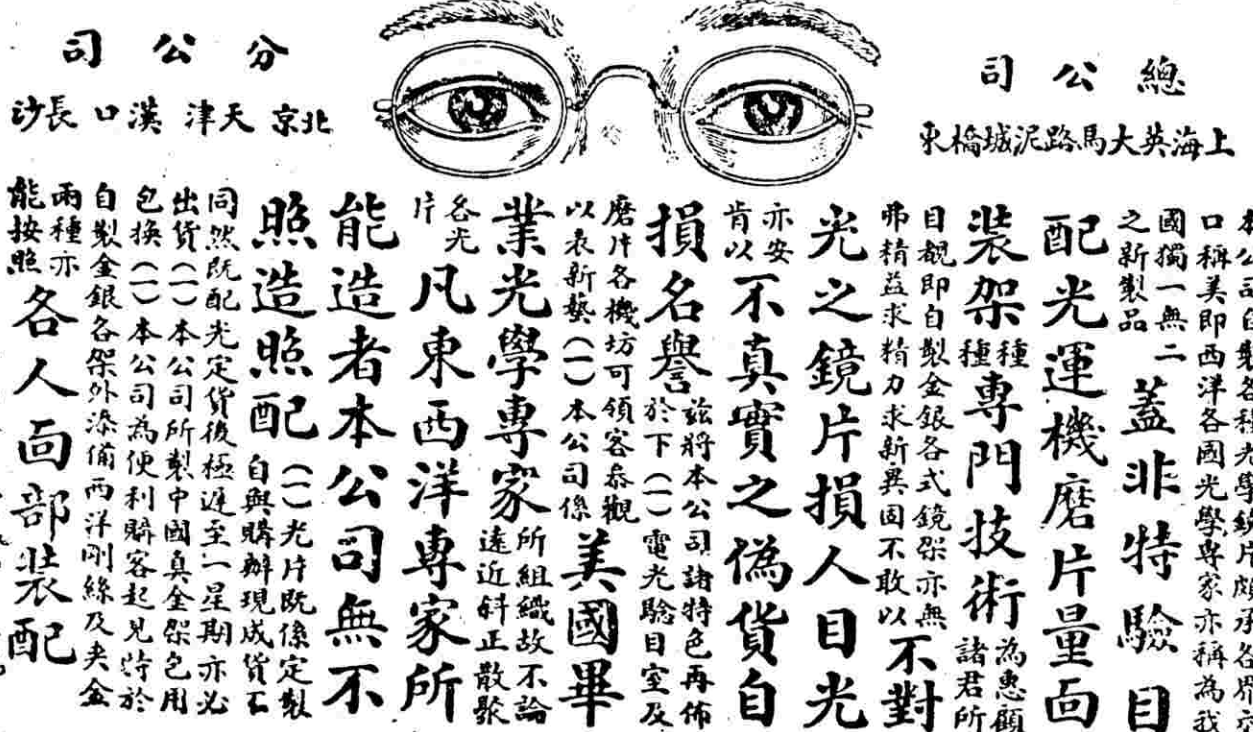 總公司
上海英大馬路泥城橋東
分公司
北京 天津 漢口 長沙
本公司自製各種光學鏡片頗承各界交
口稱美即西洋各國光學專家亦稱為我
國獨一無二
之新製品
蓋非特驗目
配光運機磨片量面
裝架
種
種
專門技術
為惠顧
諸君所
目覩即自製金銀各式鏡架亦無
弗精益求精力求新異固不敢以
不對
光之鏡片損人目光
亦安
肯以
不真實之偽貨自
損名譽
茲將本公司諸特色再佈
於下(一)電光驗目室及
磨片各機坊可領客參觀
以表新藝(一)本公司係
美國畢
業光學專家
所組織故不論
遠近斜正散聚
各光
片
凡東西洋專家所
能造者本公司無不
照造照配
(一)光片既係定製
自與購辦現成貨不
同然既配光定貨後極遲至一星期亦必
出貨(一)本公司所製中國真金架包用
包換(一)本公司為便利購客起見特於
自製金銀各架外添備西洋剛絲及夾金
兩種亦
能按照
各人面部裝配